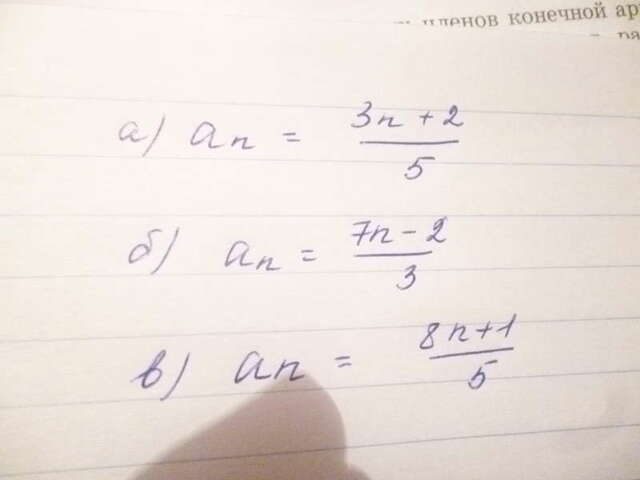 членов конечной ар
а) an = 3n + 2 / 5
б) an = 7n - 2 / 3
в) an = 8n+1 / 5